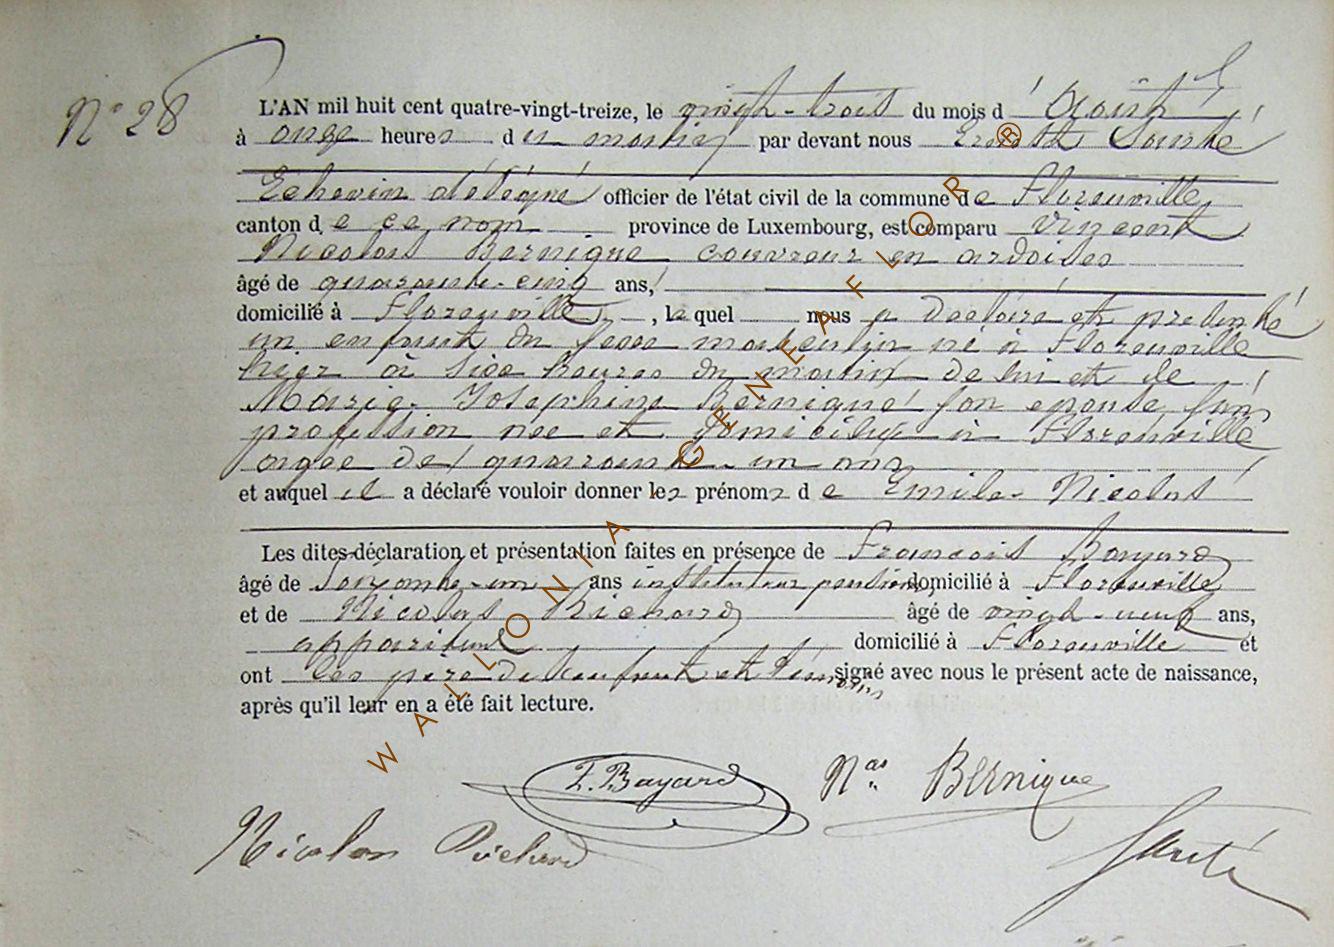 N° 28
L'AN mil huit cent quatre-vingt-treize, le vingt-trois du mois d'Août
à onze heures du matin par devant nous Ernest
Echevin délégué officier de l'état civil de la commune de Florenville
canton de ce nom province de Luxembourg, est comparu Vincent
Nicolas Bernique couvreur en ardoises
âgé de quarante-cinq ans,
domicilié à Florenville, lequel nous a déclaré et présenté
un enfant du sexe masculin né à Florenville
hier à six heures du matin de lui et de
Marie Josephine Bernique son épouse sans
profession née et domiciliée à Florenville
agée de quarante-un ans
et auquel il a déclaré vouloir donner les prénoms de Emile Nicolas
Les dites déclaration et présentation faites en présence de François Bayard
âgé de soixante-un ans instituteur pensionné domicilié à Florenville
et de Nicolas Richard âgé de vingt-neuf ans,
appariteur domicilié à Florenville et
ont les père de l'enfant et témoins signé avec nous le présent acte de naissance,
après qu'il leur en a été fait lecture.
F. Bayard
Nas Bernique
Nicolas Richard
WALLONIA GENEAFLOR®